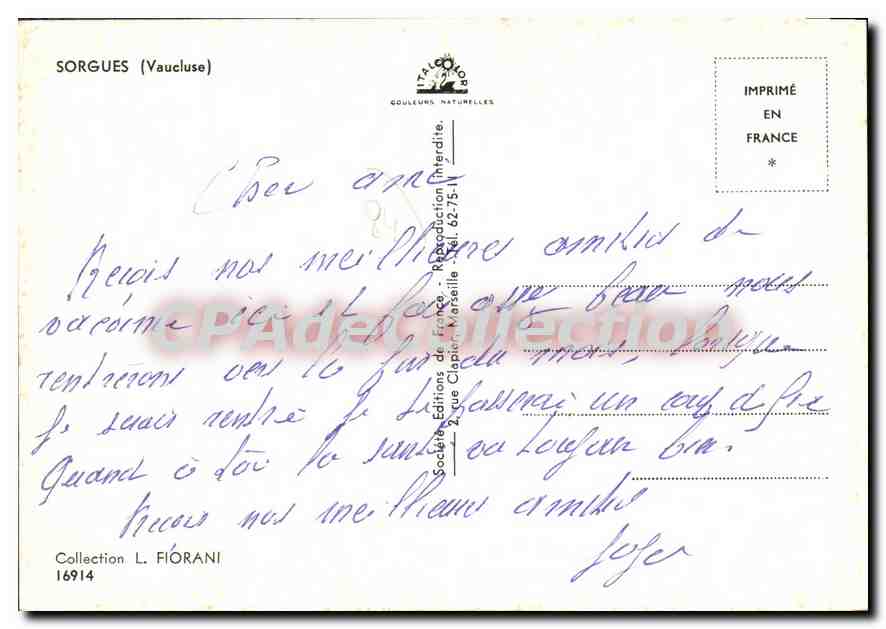 SORGUES (Vaucluse)
ITALCOLOR
COULEURS NATURELLES
IMPRIMÉ
EN
FRANCE
*
Société Editions de France - Reproduction interdite.
2, rue Clapier, Marseille - Tél. 62-75-1
Cher ami
24
Recois nos meilleures amitiés de
vacance ici il fai assez beau nous
rentrerons vers la fin du mois,
je serais rentré je te passerai un coup de
Quand à toi la santé va toujour bien.
Recois nos meilleures amitiés
CPAdeCollection
Collection L. FIORANI
16914